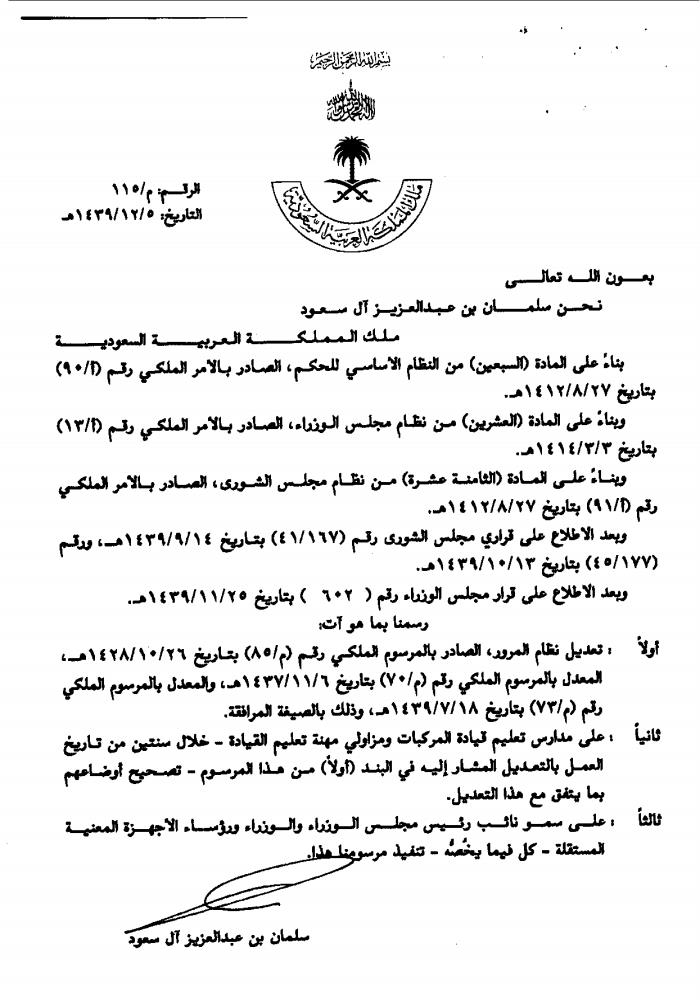 بسم الله الرحمن الرحيم
لا إله إلا الله محمد رسول الله
ملك المملكة العربية السعودية
الرقـــم: م/١١٥
التاريخ: ١٤٣٩/١٢/٥هـ
بعـــون اللـــه تعالـــى
نحـــن سلمـــان بن عبدالعزيـــز آل سعـــود
ملك المملكـــة العربيـــة السعوديـــة
بناءً على المادة (السبعين) من النظام الأساسي للحكم، الصادر بالأمر الملكي رقم (أ/٩٠)
بتاريخ ١٤١٢/٨/٢٧هـ.
وبناءً على المادة (العشرين) من نظام مجلس الوزراء، الصادر بالأمر الملكي رقم (أ/١٣)
بتاريخ ١٤١٤/٣/٣هـ.
وبناءً على المادة (الثامنة عشرة) من نظام مجلس الشورى، الصادر بالأمر الملكي
رقم (أ/٩١) بتاريخ ١٤١٢/٨/٢٧هـ.
وبعد الاطلاع على قراري مجلس الشورى رقم (٤١/١٦٧) بتاريخ ١٤٣٩/٩/١٤هـ، ورقم
(٤٥/١٧٧) بتاريخ ١٤٣٩/١٠/١٣هـ.
وبعد الاطلاع على قرار مجلس الوزراء رقم ( ٦٠٢ ) بتاريخ ١٤٣٩/١١/٢٥هـ.
رسمنا بما هو آت:
أولاً : تعديل نظام المرور، الصادر بالمرسوم الملكي رقم (م/٨٥) بتاريخ ١٤٢٨/١٠/٢٦هـ،
المعدل بالمرسوم الملكي رقم (م/٧٠) بتاريخ ١٤٣٧/١١/٦هـ، والمعدل بالمرسوم الملكي
رقم (م/٧٣) بتاريخ ١٤٣٩/٧/١٨هـ، وذلك بالصيغة المرافقة.
ثانياً : على مدارس تعليم قيادة المركبات ومزاولي مهنة تعليم القيادة - خلال سنتين من تاريخ
العمل بالتعديل المشار إليه في البند (أولاً) من هذا المرسوم - تصحيح أوضاعهم
بما يتفق مع هذا التعديل.
ثالثاً : على سمو نائب رئيس مجلس الوزراء والوزراء ورؤساء الأجهزة المعنية
المستقلة - كل فيما يخصُّه - تنفيذ مرسومنا هذا.
سلمان بن عبدالعزيز آل سعود